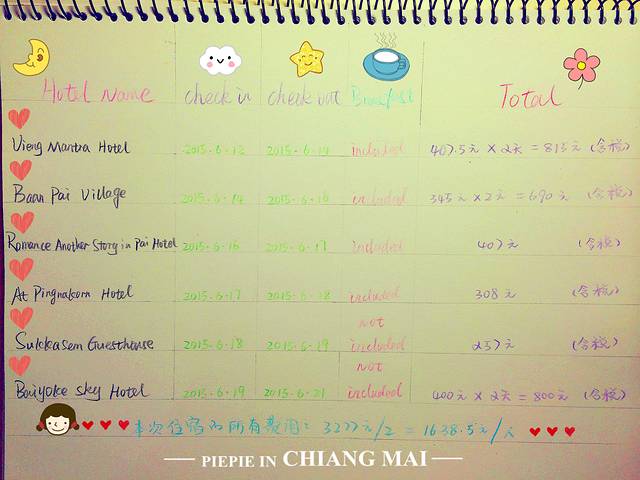 Hotel Name check in check out Breakfast Total
Vieng Mantra Hotel 2015.6.12 2015.6.14 included 407.5元 × 2天 = 815元 (含税)
Baan Pai Village 2015.6.14 2015.6.16 included 345元 × 2天 = 690元 (含税)
Romance Another Story in Pai Hotel 2015.6.16 2015.6.17 included 407元 (含税)
At Pingnakorn Hotel 2015.6.17 2015.6.18 included 308元 (含税)
not
Sukkasem Guesthouse 2015.6.18 2015.6.19 included 257元 (含税)
not
Baiyoke sky Hotel 2015.6.19 2015.6.21 included 400元 × 2天 = 800元 (含税)
本次住宿的所有费用: 3277元/2 = 1638.5元/人
PIEPIE IN CHIANG MAI